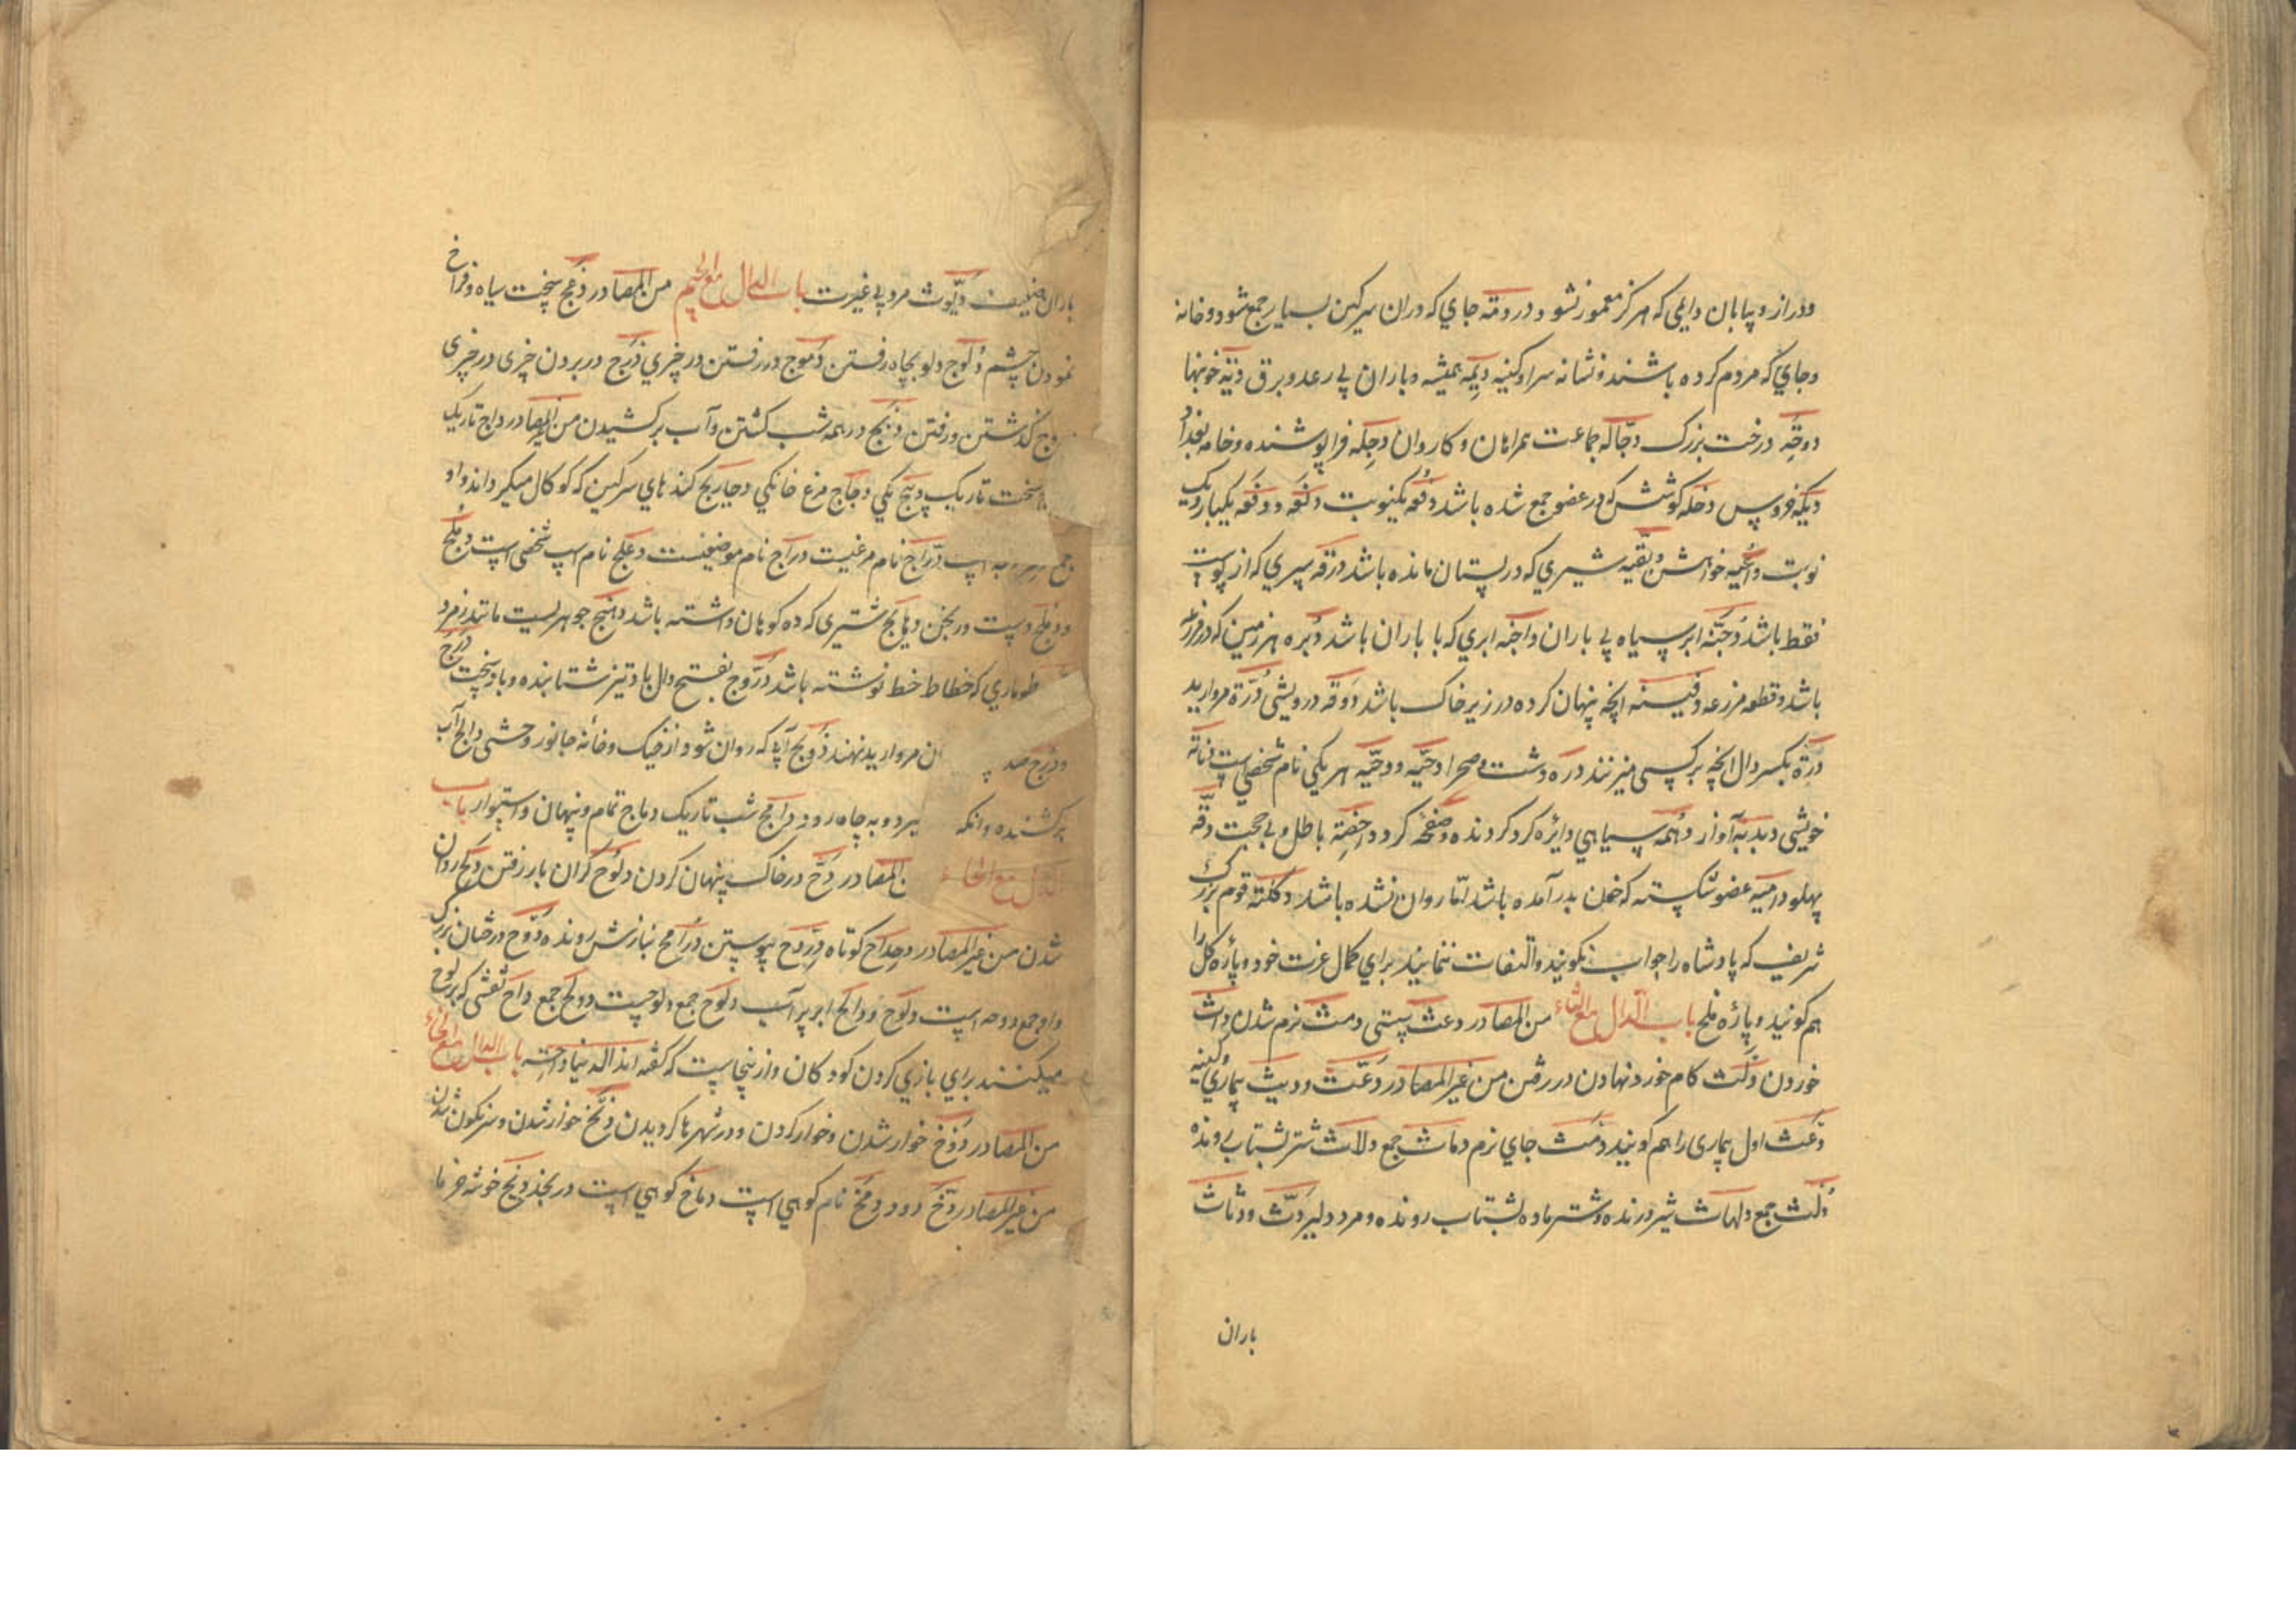 ودراز و پیابان دایمی که هرگز معمور نشود و در دمنه جای که دران سرکین بسیار جمع شود و خانه
و جای که مردم کرده باشند و نشانه سرا و کینه دیمه همیشه و باران بی رعد و برق دیة خونبها
دوحه درخت بزرک دجاله جماعت همراهان و کاروان دجله فراپوشنده و خانه بغداد
دیکه خروس دخله کوشش که در عضو جمع شده باشد دفعه یکنوبت دفعه و دفعه یکبار و یک
نوبت داعیه خواهش و بقیه شیری که در پستان مانده باشد درقه سپری که از پوست
فقط باشد دجنه ابر سیاه بی باران داجنه ابری که با باران باشد دبره هر زمین که در مزرعه
باشد و قطعه مزرعه دفینه انچه پنهان کرده در زیر خاک باشد دوقه درویشی درة مروارید
درة بکسر دال انچه بر کسی میزنند دره دشت و صحرا دحیه و دحیه هر یکی نام شخصی است دناة
خویشی دبدبه آواز دهمه سیاهی دایره کرد کردنده و صفحه کرد داحضة باطل و بی حجت دفه
پهلو دامیه عضو شکسته که خون بدر آمده باشد اما روان نشده باشد دکله قوم بزرک
شریف که پادشاه را جواب نکویند و التفات ننمایند برای کمال عزت خود و پاره کل را
هم کویند و پاره ملح باب الدال مع الثاء من المصادر دعث پستی دمث نرم شدن داث
خوردن دلث کام خورد نهادن در رفتن من غیر المصادر دعث و دیث بیماری و کینه
دعث اول بیماری را هم کویند دمث جای نرم دماث جمع دلاث شتر بشتاب رونده
دلث جمع دلهاث شیر درنده و شتر ماده بشتاب رونده و مرد دلیر دث و دثاث
باران
باران ضعیف دیوث مرد بی غیرت باب الدال مع الجیم من المصادر دعج سخت سیاه و فراخ
نمودن چشم دلوج دلو بچاه رفتن دموج در رفتن در چیزی دمج در بردن چیزی در چیزی
کذشتن و رفتن دلج در همه شب کشتن و آب برکشیدن من غیر المصادر داج تاریک
سخت تاریک دجاج مرغ خانکی دحاریج کندهای سرکین که کوکال میکرداند و او
جمع است دراج نام مرغیست دراج نام موضعیست دعلج نام اسب شخصی است دملج
و دملج دست ورنجن دهامج شتری که ده کوهان داشته باشد دهنج جوهریست مانند زمرد
طوماری که خطاط خط نوشته باشد دروج بفتح دال باد تیز شتابنده و باد سخت درج
و درج ان مروارید نهند دولج آبی که روان شود از خیک و خانه جانور وحشی دالج آب
برکشنده و انکه بچاه رود دامج شب تاریک دماج تمام و پنهان و استوار باب
الدال مع الحاء من المصادر دح در خاک پنهان کردن دلوح کران بار رفتن دلح روان
شدن من غیر المصادر دحداح کوتاه دردح پیوستن درامح بنازش رونده دوح درختان بزرک
و او جمع دوحه است دلوح و دالح ابر پر آب دلوح جمع دلوحست و دلح جمع داح نقشی که بر لوح
میکنند برای بازی کردن کودکان و ازینجاست که کفته اند الدنیا داحة باب الدال مع الخاء
من المصادر دوخ خوار شدن و خوار کردن و در شهرها کردیدن دنخ خوار شدن و سرنکون شدن
من غیر المصادر دخ دود دمخ نام کوهی است دماخ کوهی است در نجد دیخ خوشه خرما